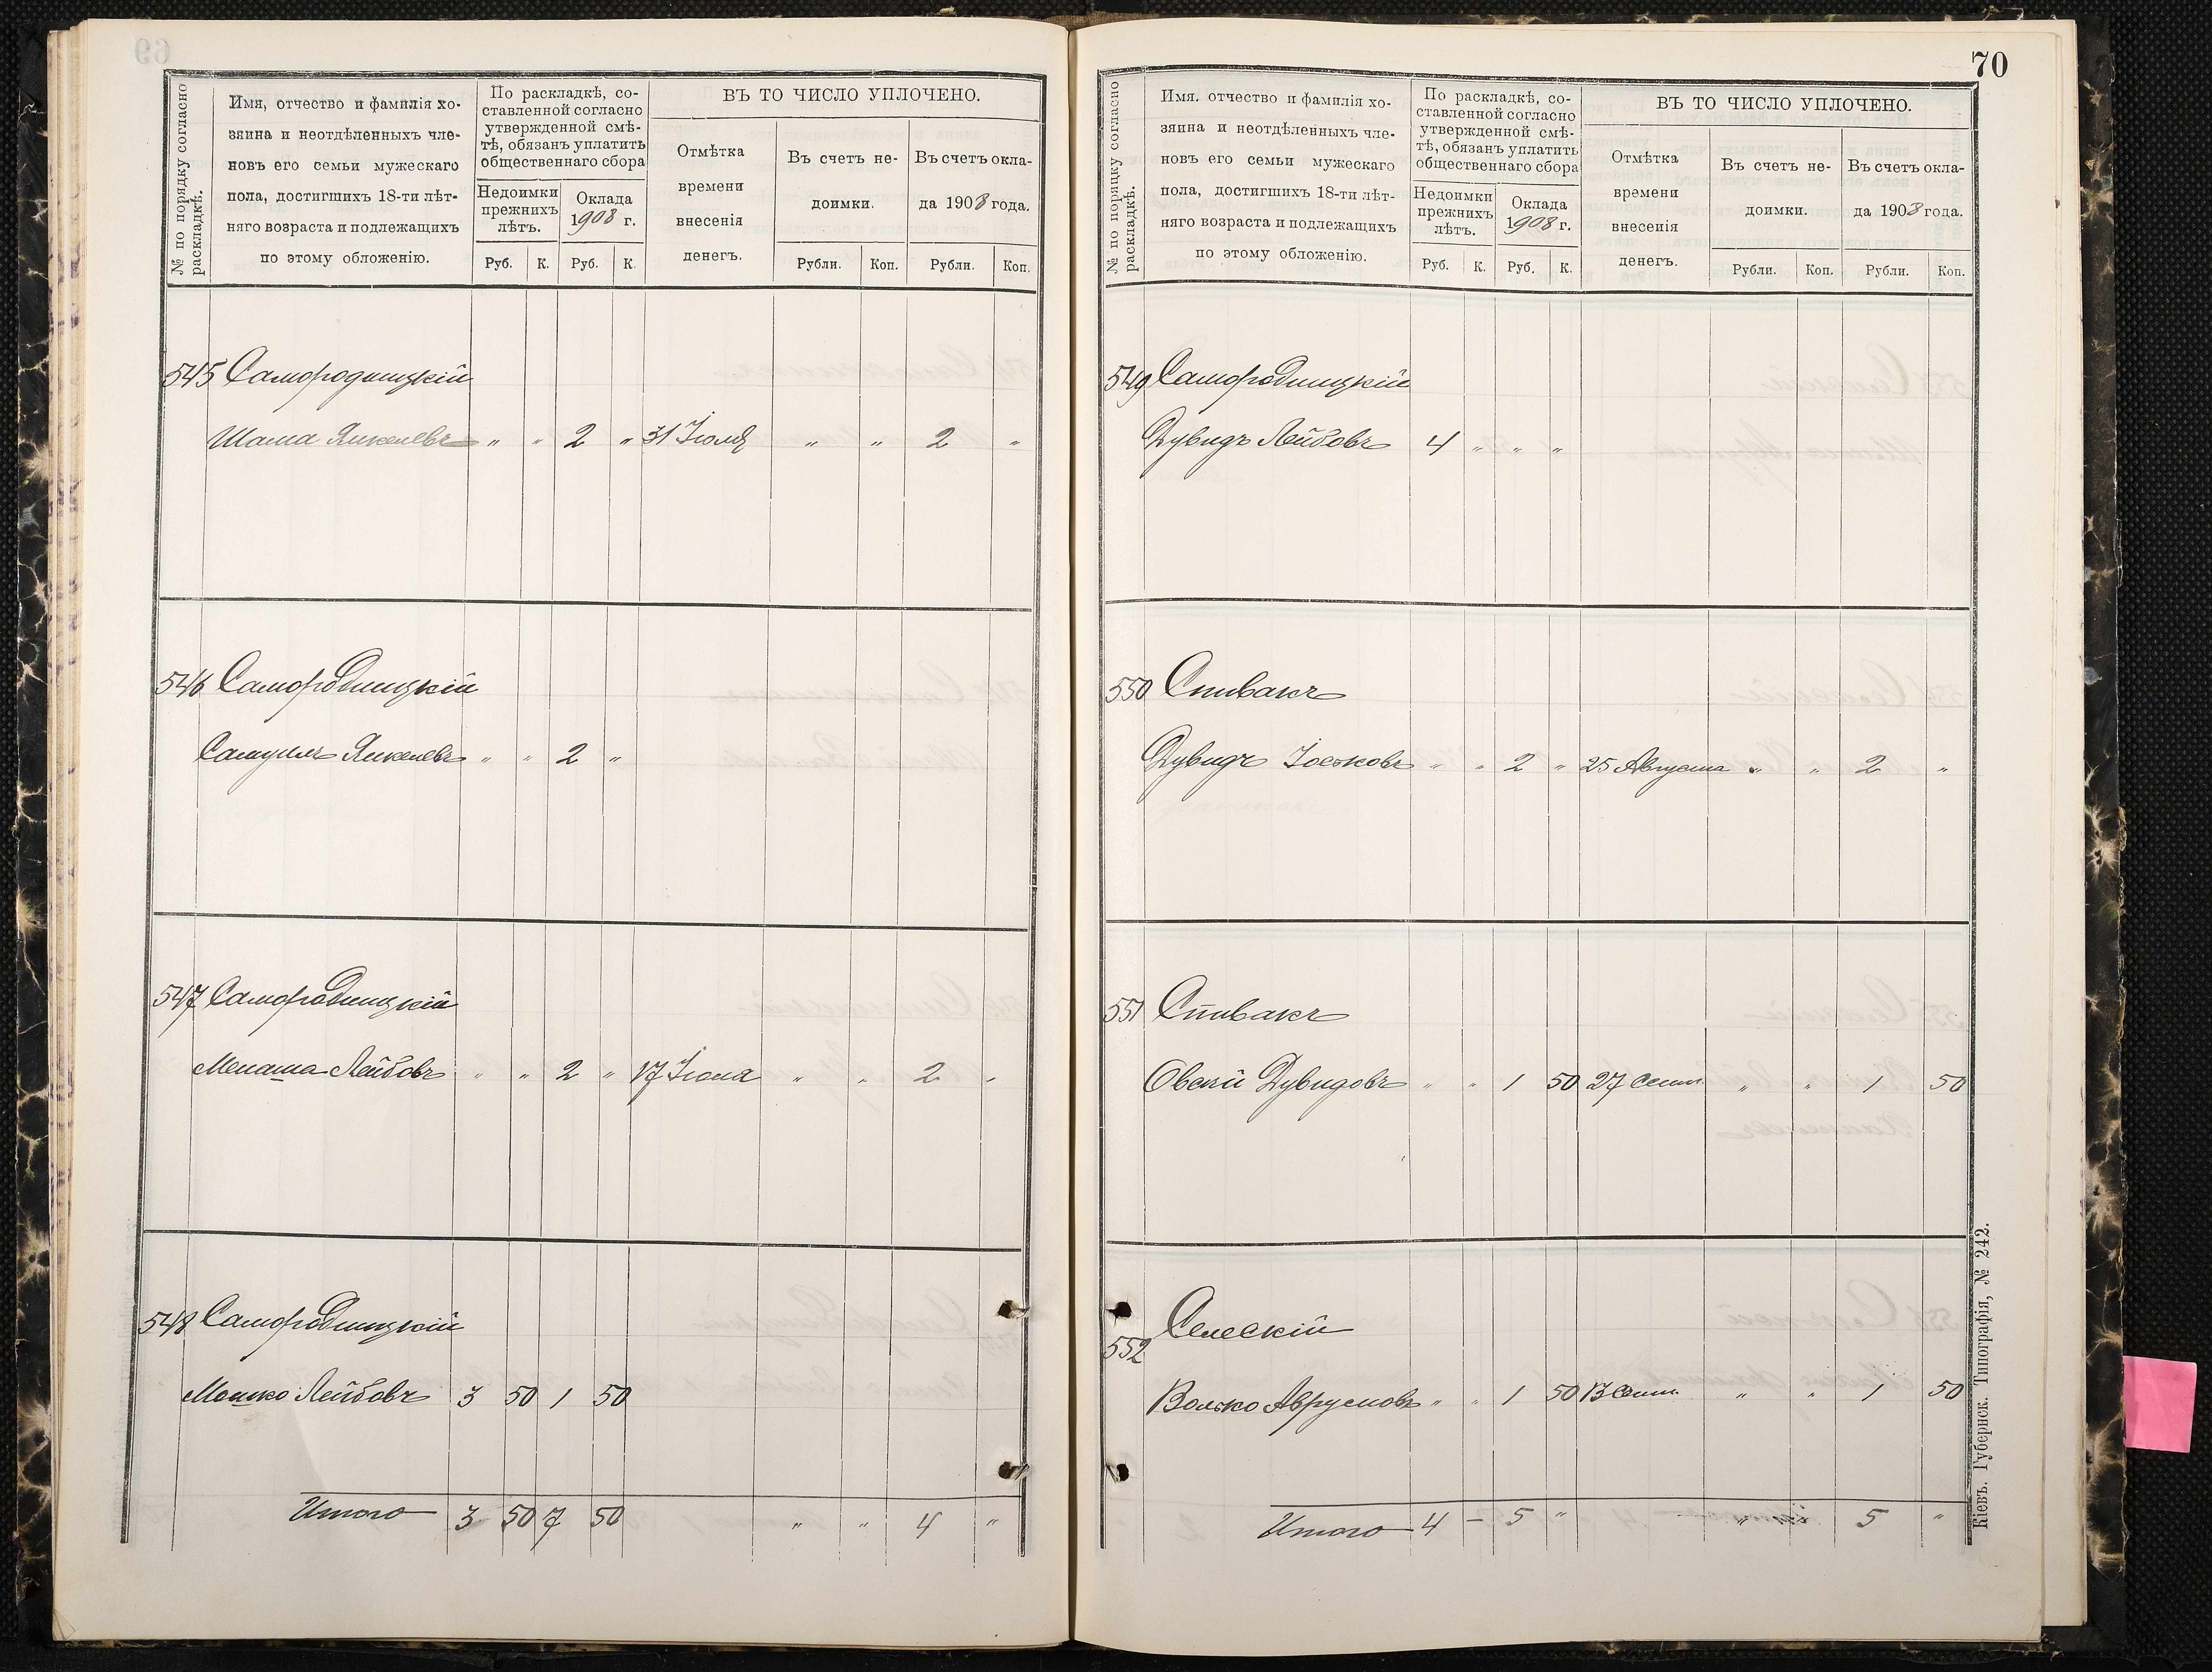 № по порядку согласно
раскладкѣ.
Имя, отчество и фамилія хо-
зяина и неотдѣленныхъ чле-
новъ его семьи мужескаго
пола, достигшихъ 18-ти лѣт-
няго возраста и подлежащихъ
по этому обложенію.
По раскладкѣ, со-
ставленной согласно
утвержденной смѣ-
тѣ, обязанъ уплатить
общественнаго сбора
Недоимки
прежнихъ
лѣтъ.
Оклада
1908 г.
Руб. К. Руб. К.
ВЪ ТО ЧИСЛО УПЛОЧЕНО.
Отмѣтка
времени
внесенія
денегъ.
Въ счетъ не-
доимки.
Въ счетъ окла-
да 1908 года.
Рубли. Коп. Рубли. Коп.
545 Самородницкій
Шама Янкелевъ " " 2 " 31 Іюля " " 2 "
546 Самородницкій
Самуилъ Янкелевъ " " 2 "
547 Самородницкій
Менаша Лейбовъ " " 2 " 17 Іюля " " 2 "
548 Самородницкій
Мошко Лейбовъ 3 50 1 50
Итого 3 50 7 50 " " 4 "
70
№ по порядку согласно
раскладкѣ.
Имя. отчество и фамилія хо-
зяина и неотдѣленныхъ чле-
новъ его семьи мужескаго
пола, достигшихъ 18-ти лѣт-
няго возраста и подлежащихъ
по этому обложенію.
По раскладкѣ, со-
ставленной согласно
утвержденной смѣ-
тѣ, обязанъ уплатить
общественнаго сбора
Недоимки
прежнихъ
лѣтъ.
Оклада
1908 г.
Руб. К. Руб. К.
ВЪ ТО ЧИСЛО УПЛОЧЕНО.
Отмѣтка
времени
внесенія
денегъ.
Въ счетъ не-
доимки.
Въ счетъ окла-
да 1908 года.
Рубли. Коп. Рубли. Коп.
549 Самородницкій
Дувидъ Лейбовъ 4 " " "
550 Спивакъ
Дувидъ Іоськовъ " " 2 " 25 Августа " " 2 "
551 Спивакъ
Овсій Дувидовъ " " 1 50 27 Сент. " " 1 50
552 Селескій
Волько Аврумовъ " " 1 50 13 Сент. " " 1 50
Итого 4 — 5 " " " 5 "
Кіевъ. Губернск. Типографія, № 242.